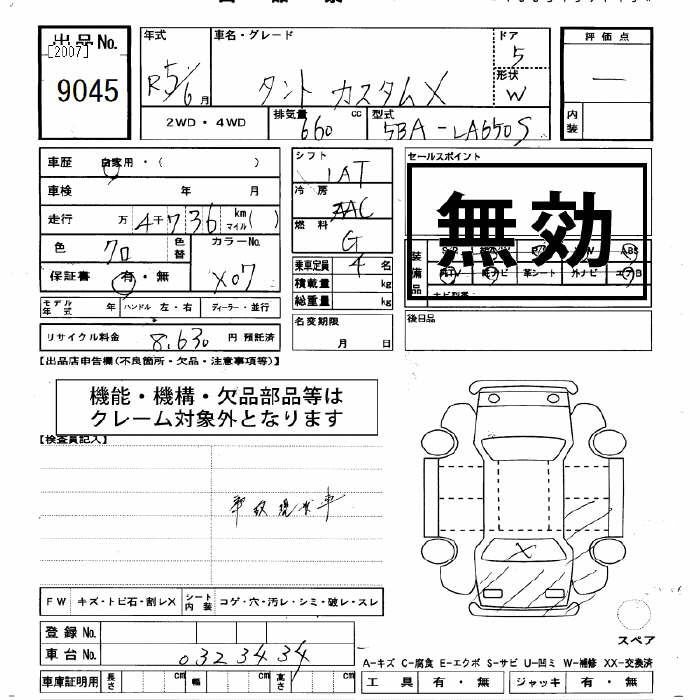 出品 No.
[2007]
9045
年式
R5/6月
車名・グレード
タント カスタムX
ドア
5
形状
W
2WD・4WD
排気量
660 cc
型式
5BA-LA650S
評価点
―
内装
車歴 自家用・( )
車検 年 月
走行 万 4千736 km マイル ( )
色 クロ 色替
カラーNo.
X07
保証書 有・無
シフト
IAT
冷房
AAC
燃料
G
乗車定員 4 名
積載量 kg
総重量 kg
セールスポイント
無効
装備品
ABS
革シート 外ナビ エアB
モデル年式 年 ハンドル 左・右 ディーラー・並行
リサイクル料金 8,630 円 預託済
名変期限
月 日
後日品
【出品店申告欄(不良箇所・欠品・注意事項等)】
機能・機構・欠品部品等は
クレーム対象外となります
【検査員記入】
事故現状車
FW キズ・トビ石・割レX シート内装 コゲ・穴・汚レ・シミ・破レ・スレ
登録 No.
車台 No. 0323434
車庫証明用 長さ cm 幅 cm 高さ cm
X
スペア
A-キズ C-腐食 E-エクボ S-サビ U-凹ミ W-補修 XX-交換済
工具 有・無 ジャッキ 有・無